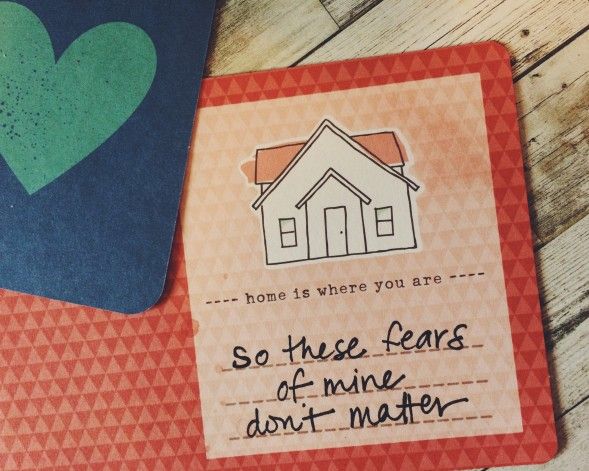 ---- home is where you are ----
so these fears
of mine
don't matter